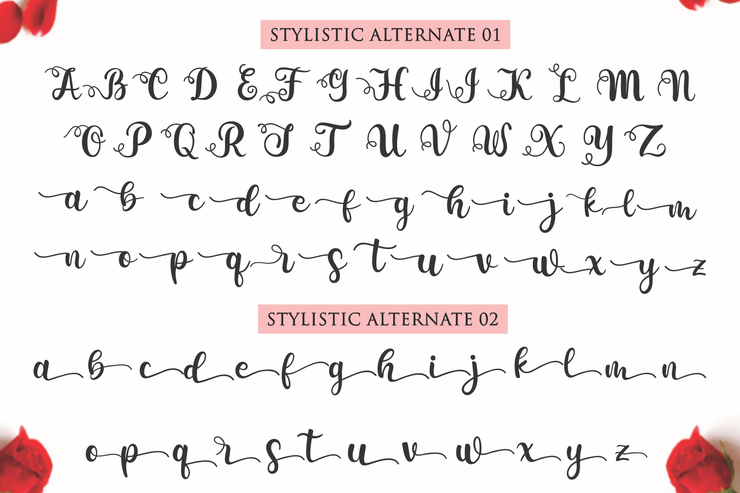 STYLISTIC ALTERNATE 01
A B C D E F G H I J K L M N
O P Q R S T U V W X Y Z
a b c d e f g h i j k l m
n o p q r s t u v w x y z
STYLISTIC ALTERNATE 02
a b c d e f g h i j k l m n
o p q r s t u v w x y z